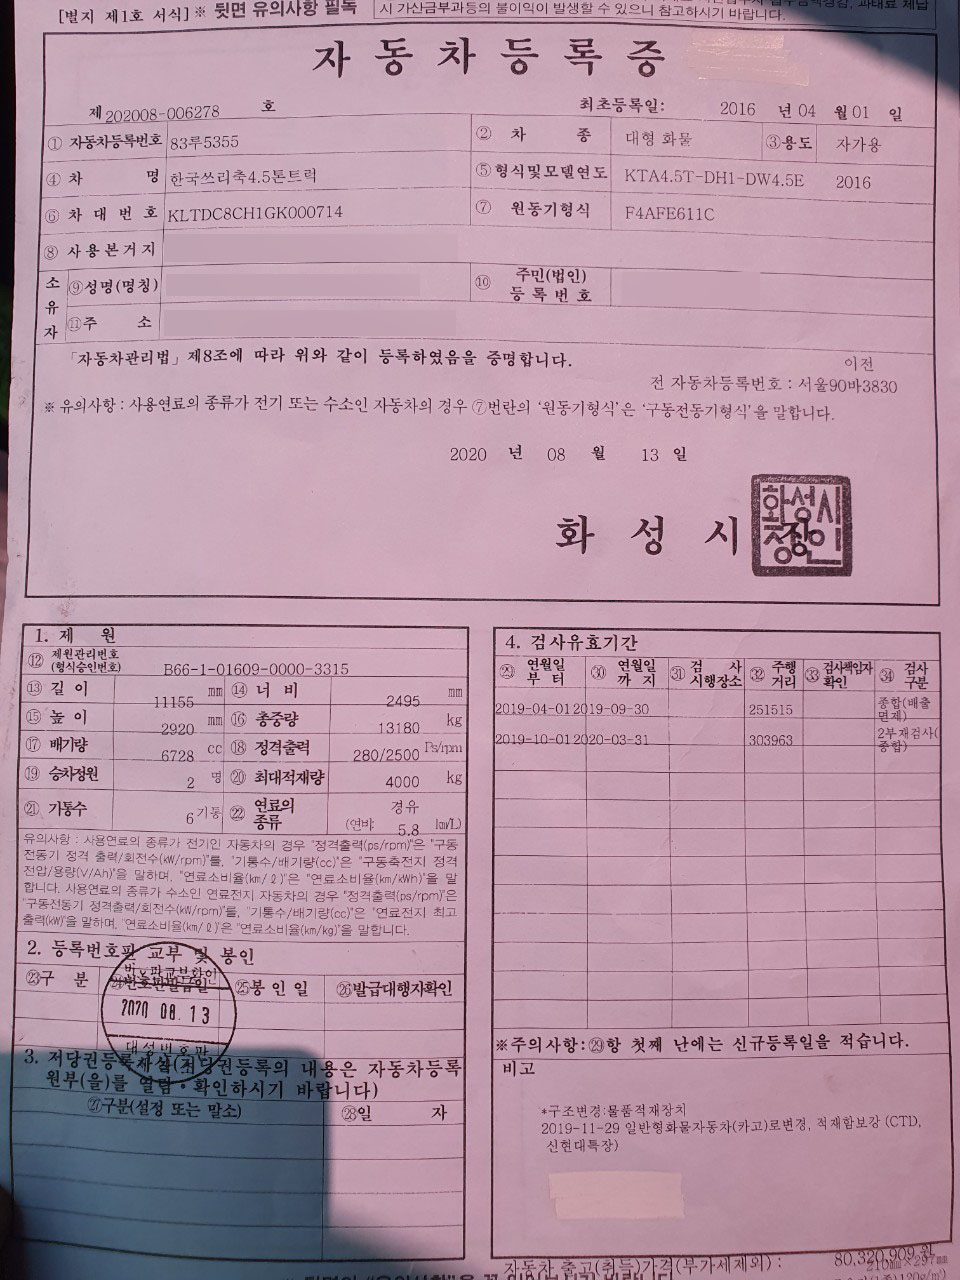 [별지 제1호 서식] ※ 뒷면 유의사항 필독
시 가산금부과등의 불이익이 발생할 수 있으니 참고하시기 바랍니다.
자동차등록증
제 202008-006278 호 최초등록일: 2016 년 04 월 01 일
① 자동차등록번호 83루5355 ② 차 종 대형 화물 ③용도 자가용
④ 차 명 한국쓰리축4.5톤트럭 ⑤형식및모델연도 KTA4.5T-DH1-DW4.5E 2016
⑥ 차대번호 KLTDC8CH1GK000714 ⑦ 원동기형식 F4AFE611C
⑧ 사용본거지
소유자 ⑨성명(명칭) ⑩ 주민(법인)등록번호
⑪주 소
「자동차관리법」제8조에 따라 위와 같이 등록하였음을 증명합니다.
이전
전 자동차등록번호 : 서울90바3830
※ 유의사항 : 사용연료의 종류가 전기 또는 수소인 자동차의 경우 ⑦번란의 '원동기형식'은 '구동전동기형식'을 말합니다.
2020 년 08 월 13 일
화성시장
화성시장인
1. 제 원
⑫ 제원관리번호(형식승인번호) B66-1-01609-0000-3315
⑬ 길이 11155 mm ⑭ 너비 2495 mm
⑮ 높이 2920 mm ⑯ 총중량 13180 kg
⑰ 배기량 6728 cc ⑱ 정격출력 280/2500 Ps/rpm
⑲ 승차정원 2 명 ⑳ 최대적재량 4000 kg
㉑ 기통수 6 기통 ㉒ 연료의 종류 경유
(연비 5.8 km/L)
유의사항 : 사용연료의 종류가 전기인 자동차의 경우 "정격출력(ps/rpm)"은 "구동
전동기 정격 출력/회전수(kW/rpm)"를, "기통수/배기량(cc)"은 "구동축전지 정격
전압/용량(V/Ah)"을 말하며, "연료소비율(km/ℓ)"은 "연료소비율(km/kWh)"을 말
합니다. 사용연료의 종류가 수소인 연료전지 자동차의 경우 "정격출력(ps/rpm)"은
"구동전동기 정격출력/회전수(kW/rpm)"를, "기통수/배기량(cc)"은 "연료전지 최고
출력(kW)"을 말하며, "연료소비율(km/ℓ)"은 "연료소비율(km/kg)"을 말합니다.
2. 등록번호판 교부 및 봉인
㉓구 분 ㉔번호판발급일 ㉕봉인일 ㉖발급대행자확인
번호판교부확인
2020 08. 13
대성번호판
3. 저당권등록사실(저당권등록의 내용은 자동차등록
원부(을)를 열람·확인하시기 바랍니다)
㉗구분(설정 또는 말소) ㉘일 자
4. 검사유효기간
㉙ 연월일부터 ㉚ 연월일까지 ㉛ 검사시행장소 ㉜ 주행거리 ㉝ 검사책임자확인 ㉞ 검사구분
2019-04-01 2019-09-30 251515 종합(배출면제)
2019-10-01 2020-03-31 303963 2부재검사(종합)
※주의사항:㉙항 첫째 난에는 신규등록일을 적습니다.
비고
*구조변경:물품적재장치
2019-11-29 일반형화물자동차(카고)로변경, 적재함보강 (CTD,
신현대특장)
자동차 출고(취득)가격(부가세제외) : 80,320,909 원
210㎜×297㎜